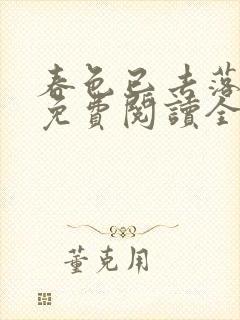 春色已去落
免費閱讀全
董克用